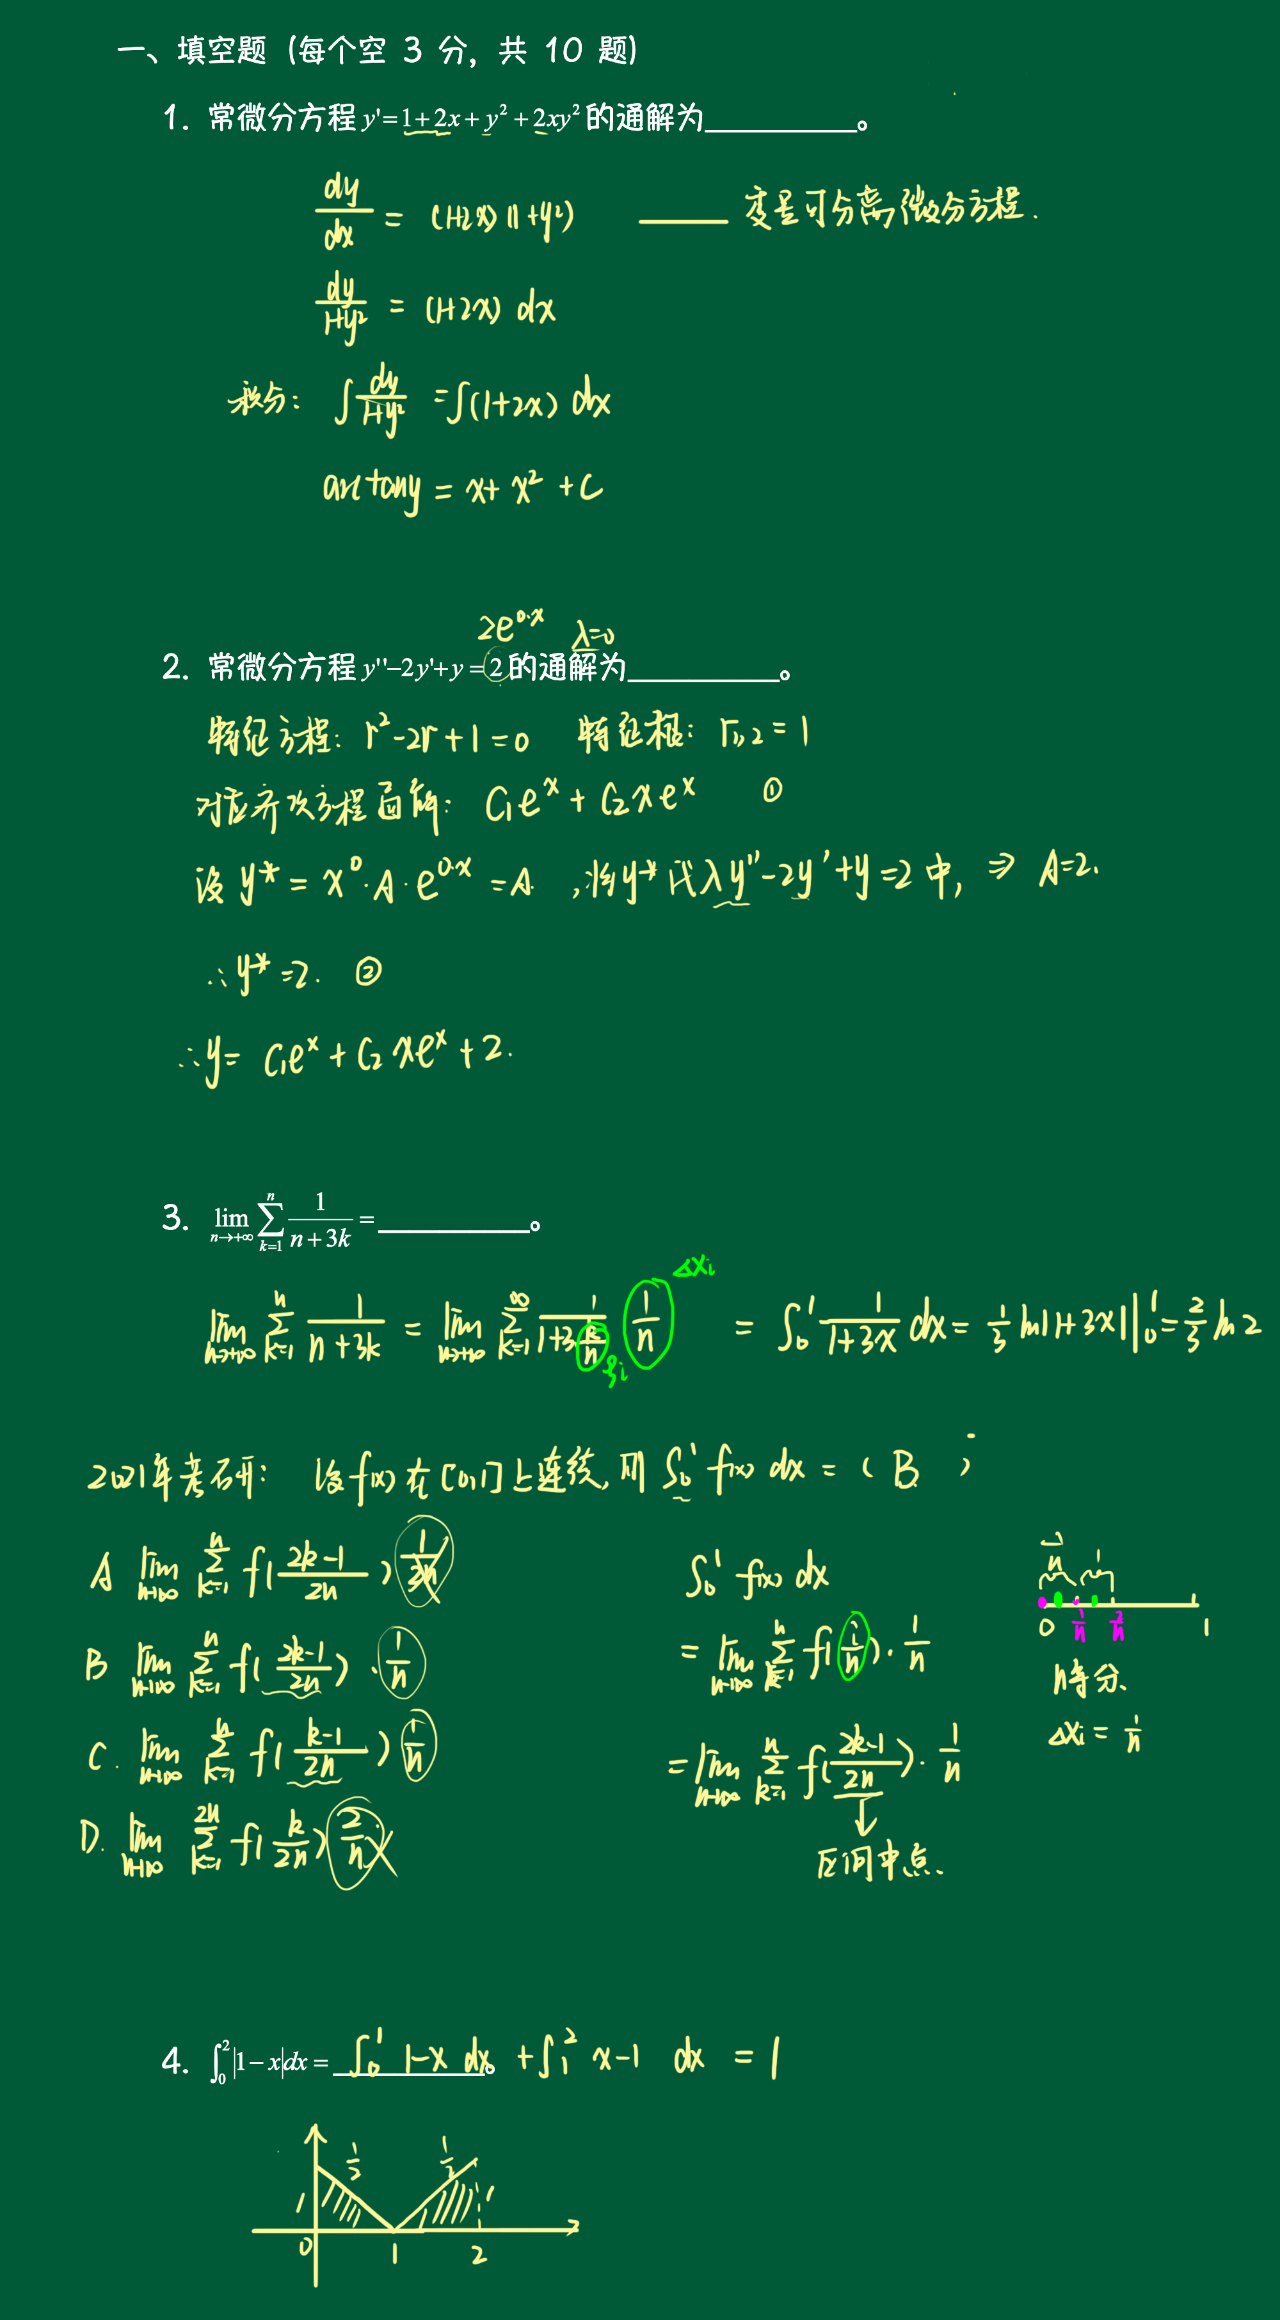 一、填空题 (每个空 3 分, 共 10 题)
1. 常微分方程 y'=1+2x+y²+2xy² 的通解为__________。
dy/dx = (1+2x)(1+y²) —— 变量可分离微分方程.
dy/1+y² = (1+2x) dx
积分: ∫dy/1+y² = ∫(1+2x) dx
arctany = x+x²+C
2e^{0·x} λ=0
2. 常微分方程 y''-2y'+y=2 的通解为__________。
特征方程: r²-2r+1=0 特征根: r₁,₂=1
对应齐次方程通解: C₁e^x + C₂xe^x ①
设 y* = x⁰·A·e^{0·x} = A. ,将y*代入y''-2y'+y=2 中, ⇒ A=2.
∴y*=2. ②
∴y= C₁e^x + C₂xe^x + 2.
3. lim_{n→+∞} ∑_{k=1}^{n} 1/(n+3k) = __________。
Δxi
lim_{n→+∞} ∑_{k=1}^{n} 1/(n+3k) = lim_{n→+∞} ∑_{k=1}^{∞} 1/(1+3·k/n) · 1/n = ∫₀¹ 1/(1+3x) dx = 1/3 ln|1+3x| |₀¹ = 2/3 ln2
ξi
2021年考研: 设f(x)在[0,1]上连续,则 ∫₀¹ f(x) dx = ( B )
A lim_{n→∞} ∑_{k=1}^{n} f((2k-1)/2n) 1/2n
B lim_{n→∞} ∑_{k=1}^{n} f((2k-1)/2n)·1/n
C. lim_{n→∞} ∑_{k=1}^{n} f((k-1)/2n) 1/n
D. lim_{n→∞} ∑_{k=1}^{2n} f(k/2n) 2/n
∫₀¹ f(x) dx
= lim_{n→∞} ∑_{k=1}^{n} f(i/n)·1/n
= lim_{n→∞} ∑_{k=1}^{n} f((2k-1)/2n)·1/n
区间中点.
0 1/n 2/n 1
n等分.
Δxi = 1/n
4. ∫₀²|1-x|dx = __________。 ∫₀¹ 1-x dx + ∫₁² x-1 dx = 1
1/2 1/2
1 1
0 1 2